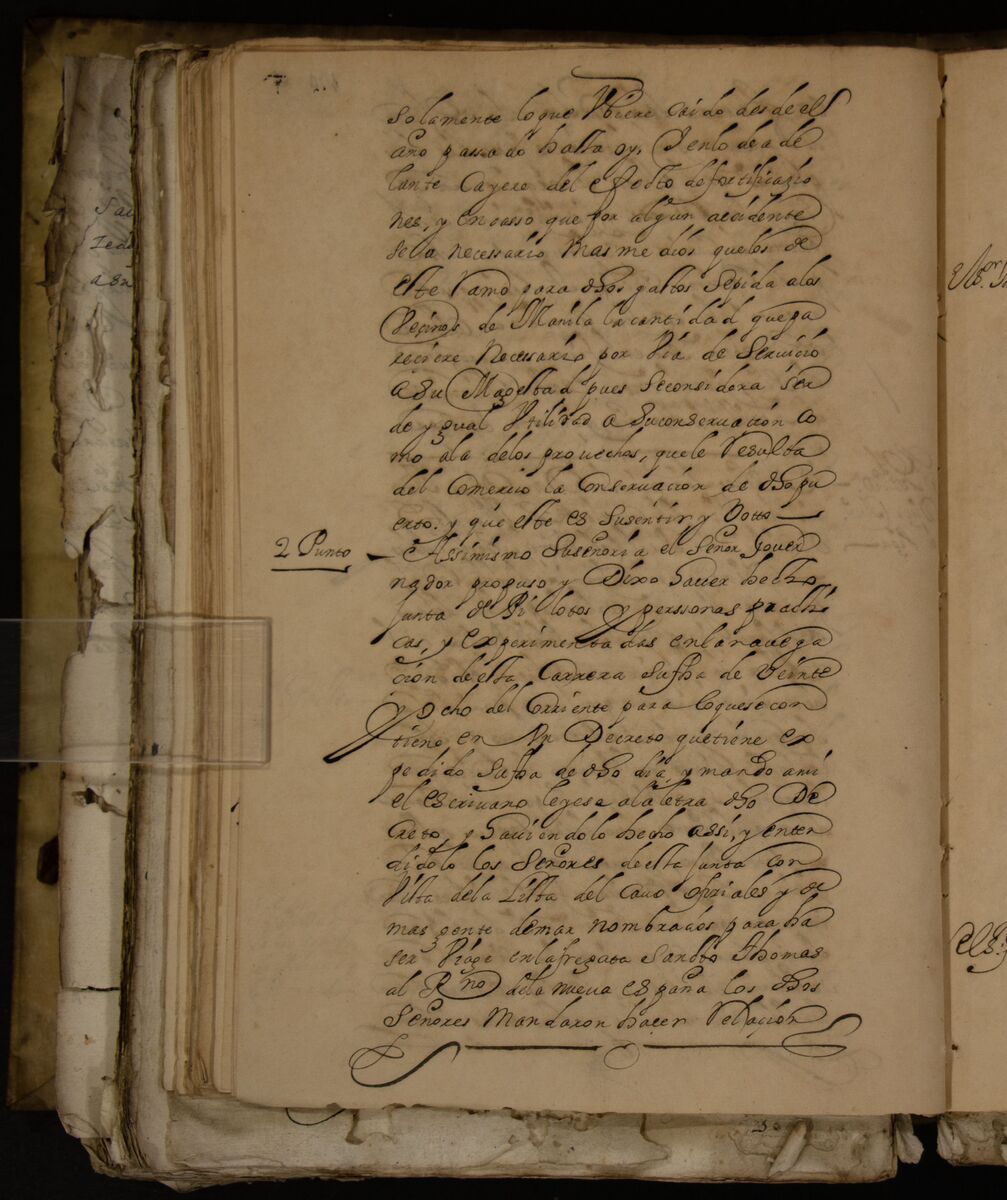 solamente loque Ubiere caido desde el
año passado hasta oy, Y enlo de ade
lante Cayere del efecto defortificazio
nes, y encasso que por algun accidente
sea necessario mas medios quelos de
este Ramo para dhos gastos Sepida alos
Veçinos de Manila lacantidad quepa
reciere necessario por Via de Servicio
a Su Magestad pues Seconsidera ser
de ygual Utilidad a Suconseruaçion co
mo ala delos prouechos, quele Resulta
del Comercio la Conseruaçion de dho pu
erto. y que este es Susentir y Votto
2 Punto
Assimismo Suseñoria el Señor Gouer
nador propuso y Dixo hauer hecho
Junta de Pilotos y perssonas practi
cas, y experimentadas enlanauega
çion desta Carrera Sufha de Veinte
y ocho del Corriente para loquesecon
tiene en Un Decreto quetiene ex
pedido Sufha de dho dia y mando ami
el escriuano leyese alaletra dho De
creto, y hauiendolo hecho assi, y enten
didolo los Señores desta Junta con
Vista dela Lista del Cauo ofiziales y de
mas gente demar nombrados para ha
ser Viage enlafregata Sancto Thomas
al Rno dela nueua españa los dhos
Señores Mandaron haçer Relaçion